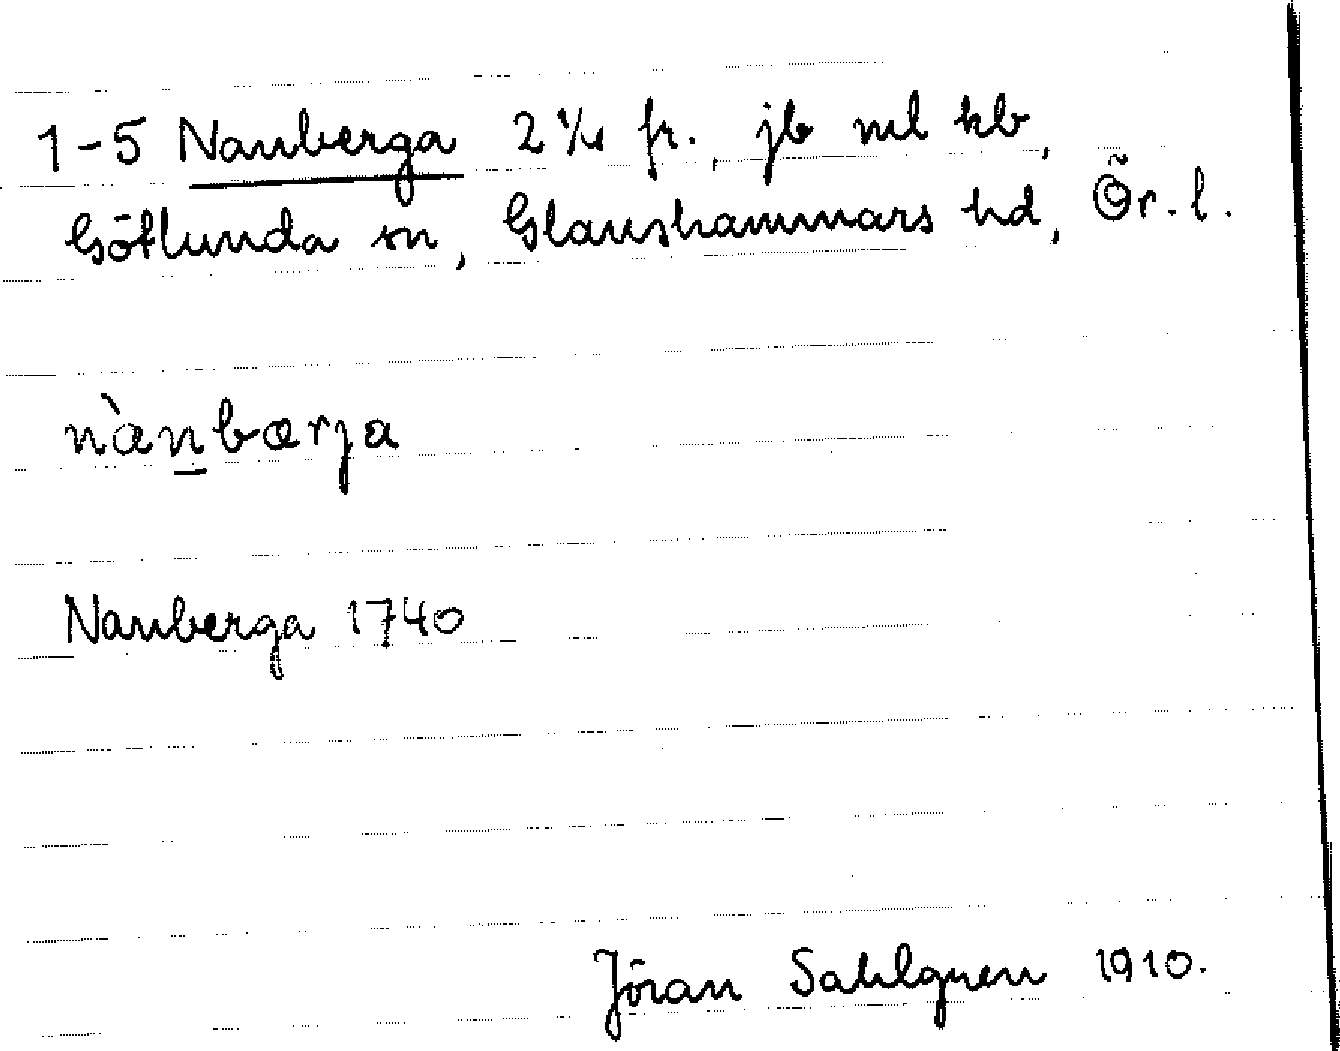 1-5 Nanberga 2 1/4 fr., jb ml kb,
Götlunda sn, Glanshammars hd, Ör. l.
nànbærja
Nanberga 1740
Jöran Sahlgren 1910.